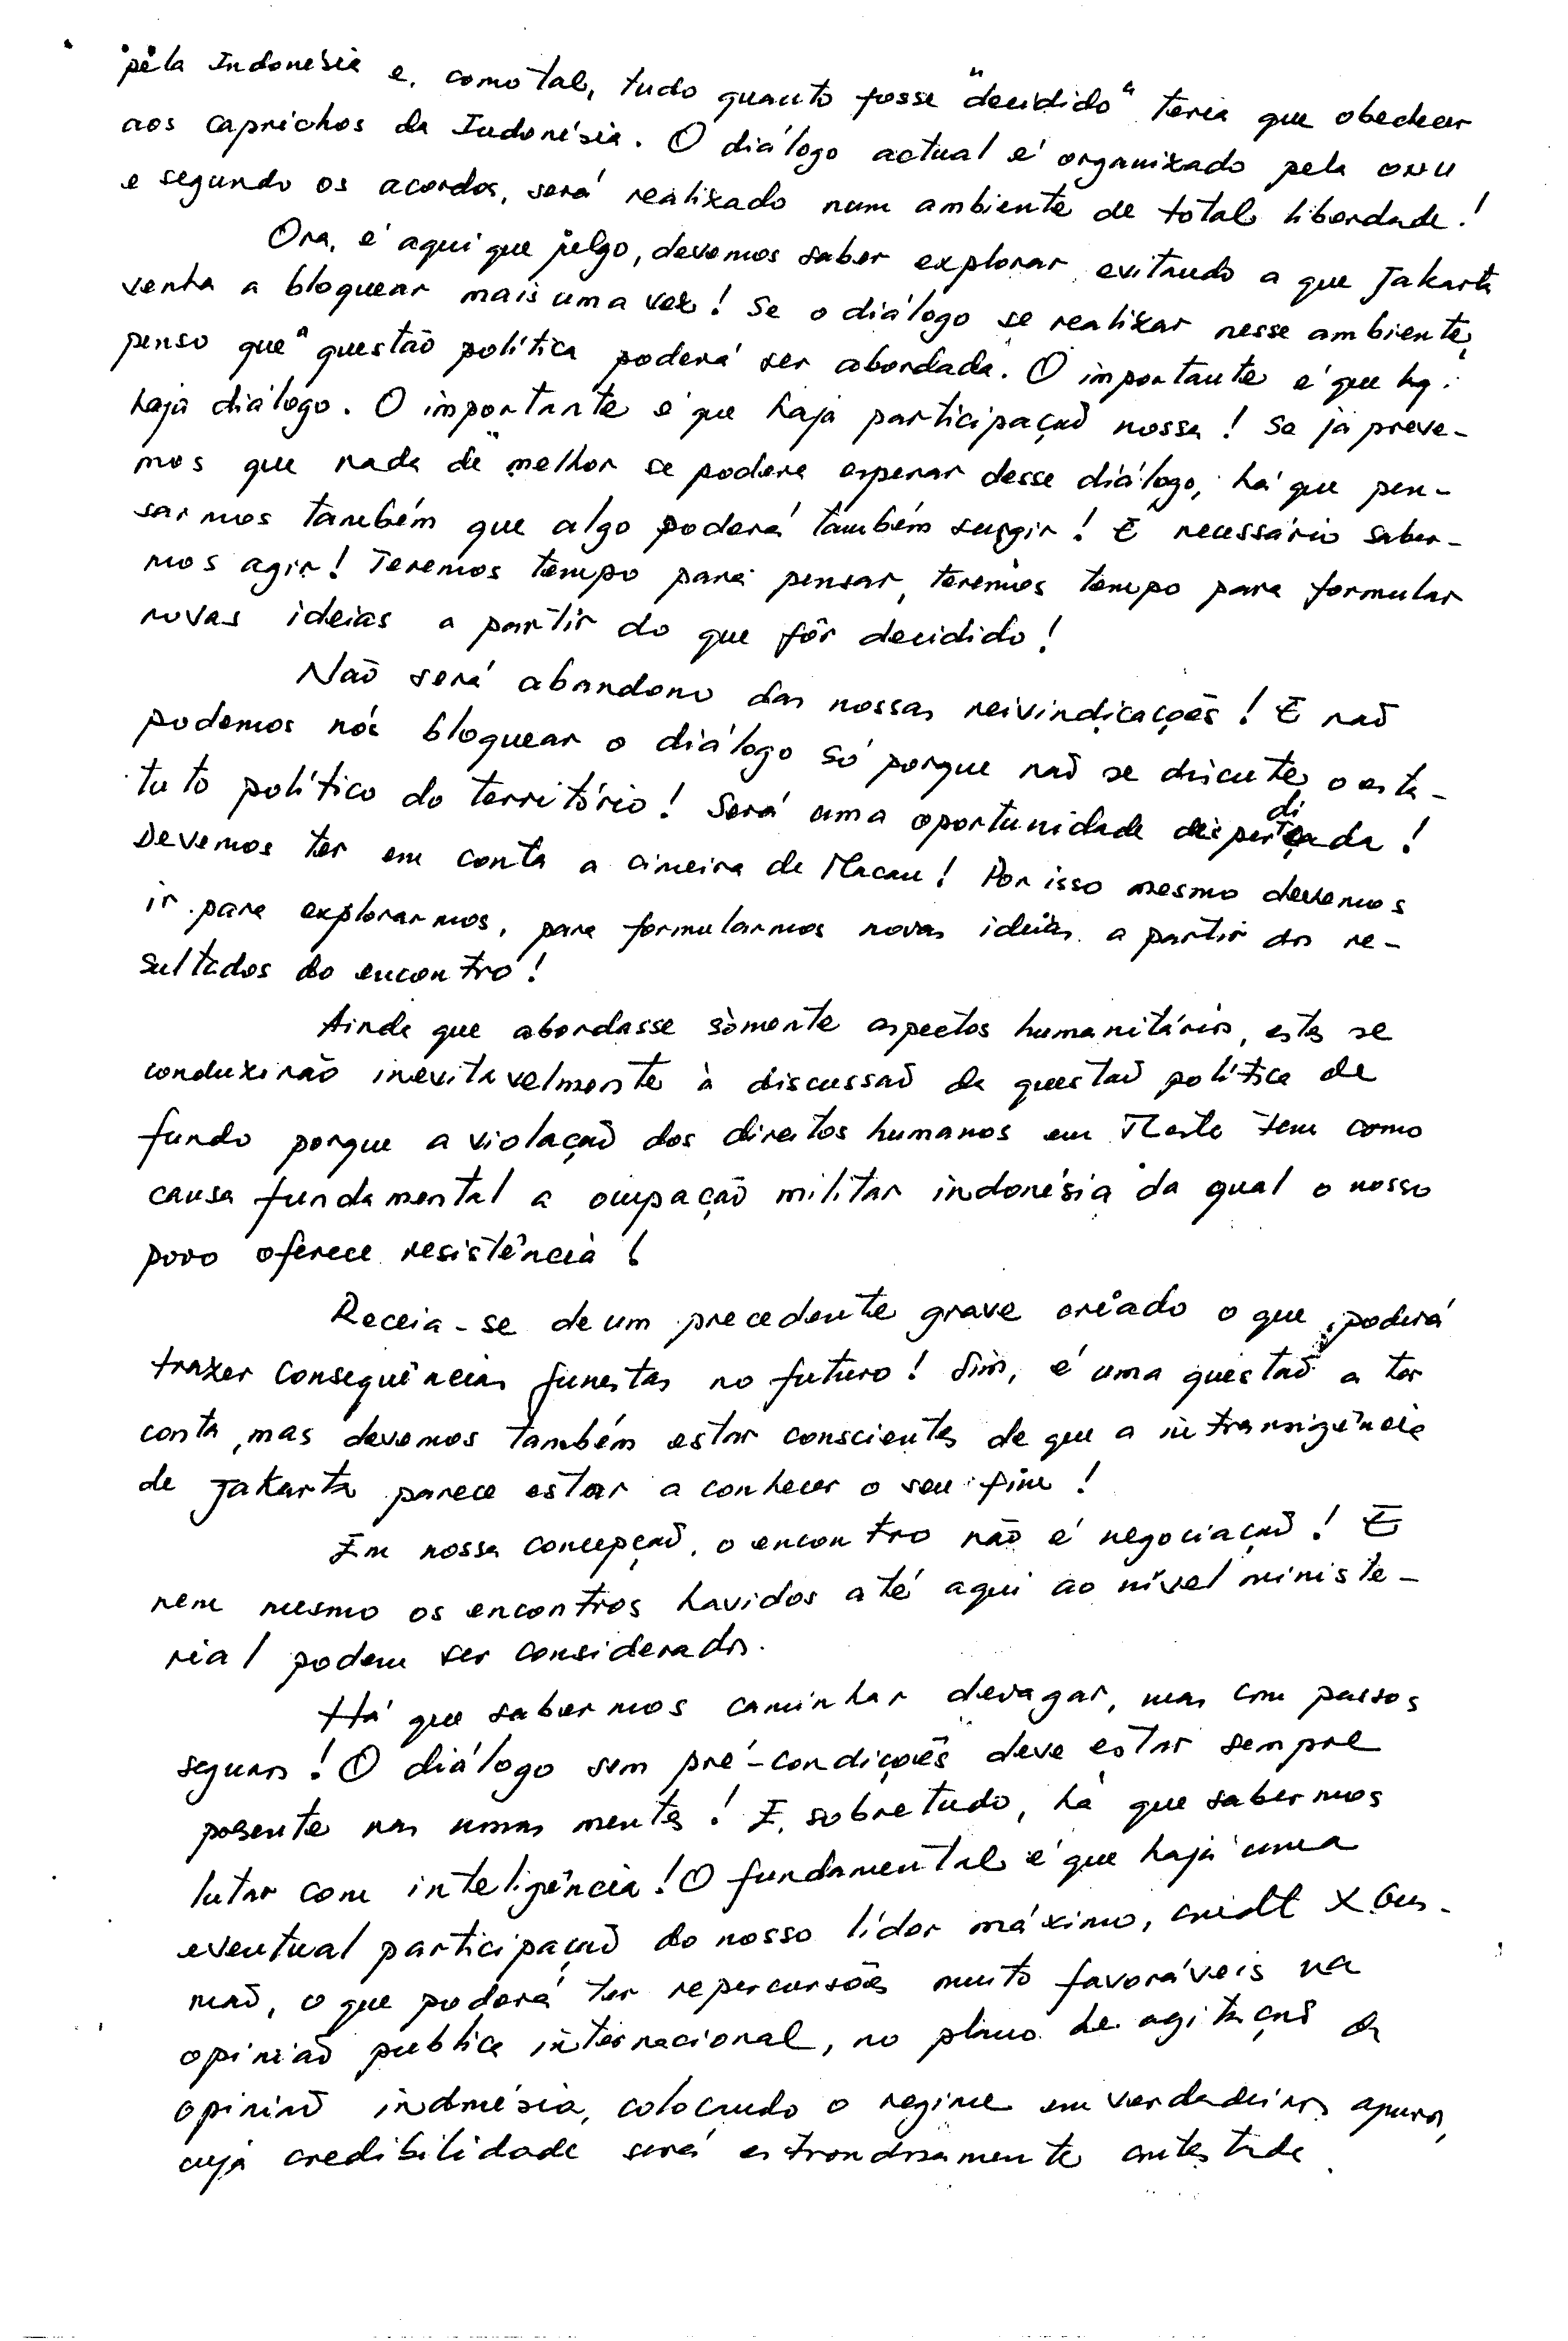 pela Indonésia e, como tal, tudo quanto fosse "decidido" teria que obedecer
aos caprichos da Indonésia. O diálogo actual é organizado pela ONU
e segundo os acordos, será realizado num ambiente de total liberdade!
Ora, é aqui que julgo, devemos saber explorar evitando a que Jakarta
venha a bloquear mais uma vez! Se o diálogo se realizar nesse ambiente,
penso que a questão política poderá ser abordada. O importante é que
haja diálogo. O importante é que haja participação nossa! Se já preve-
mos que nada de melhor se poderá esperar desse diálogo, há que pen-
sarmos também que algo poderá também surgir! É necessário saber-
mos agir! Teremos tempo para pensar, teremos tempo para formular
novas ideias a partir do que fôr decidido!
Não será abandono das nossas reivindicações! E não
podemos nós bloquear o diálogo só porque não se discute o esta-
tuto político do território! Será uma oportunidade desperdiçada!
Devemos ter em conta a cimeira de Macau! Por isso mesmo devemos
ir para explorarmos, para formularmos novas ideias a partir dos re-
sultados do encontro!
Ainda que abordasse sòmente aspectos humanitários, estes se
conduzirão inevitavelmente à discussão da questão política de
fundo porque a violação dos direitos humanos em T. Leste tem como
causa fundamental a ocupação militar indonésia da qual o nosso
povo oferece resistência!
Receia-se de um precedente grave criado o que poderá
trazer consequências funestas no futuro! Sim, é uma questão a ter
conta, mas devemos também estar conscientes de que a intransigência
de Jakarta parece estar a conhecer o seu fim!
Em nossa concepção, o encontro não é negociação! E
nem mesmo os encontros havidos até aqui ao nível ministe-
rial podem ser considerados.
Há que sabermos caminhar devagar, mas com passos
seguros! O diálogo sem pré-condições deve estar sempre
presente nas nossas mentes! E, sobretudo, há que sabermos
lutar com inteligência! O fundamental é que haja uma
eventual participação do nosso líder máximo, cmdt X. Gus-
mão, o que poderá ter repercursões muito favoráveis na
opinião publica internacional, no plano de agitação da
opinião indonésia, colocando o regime em verdadeiros apuros,
cuja credibilidade será estrondosamente contestada.